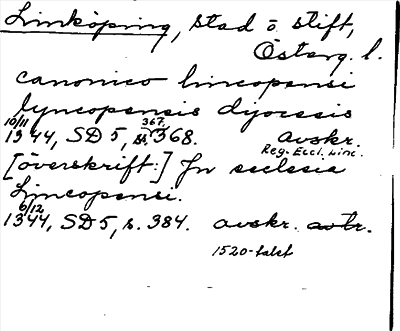 Linköping, stad o stift,
Österg. l.
canonico lincopensi
lyncopensis dyocesis
10/11 1344, SD 5, s. 367, 368. avskr.
Reg. Eccl. Linc.
[överskrift:] In ecclesia
Lincopensi.
6/12 1344, SD 5, s. 384. avskr. avtr.
1520-talet